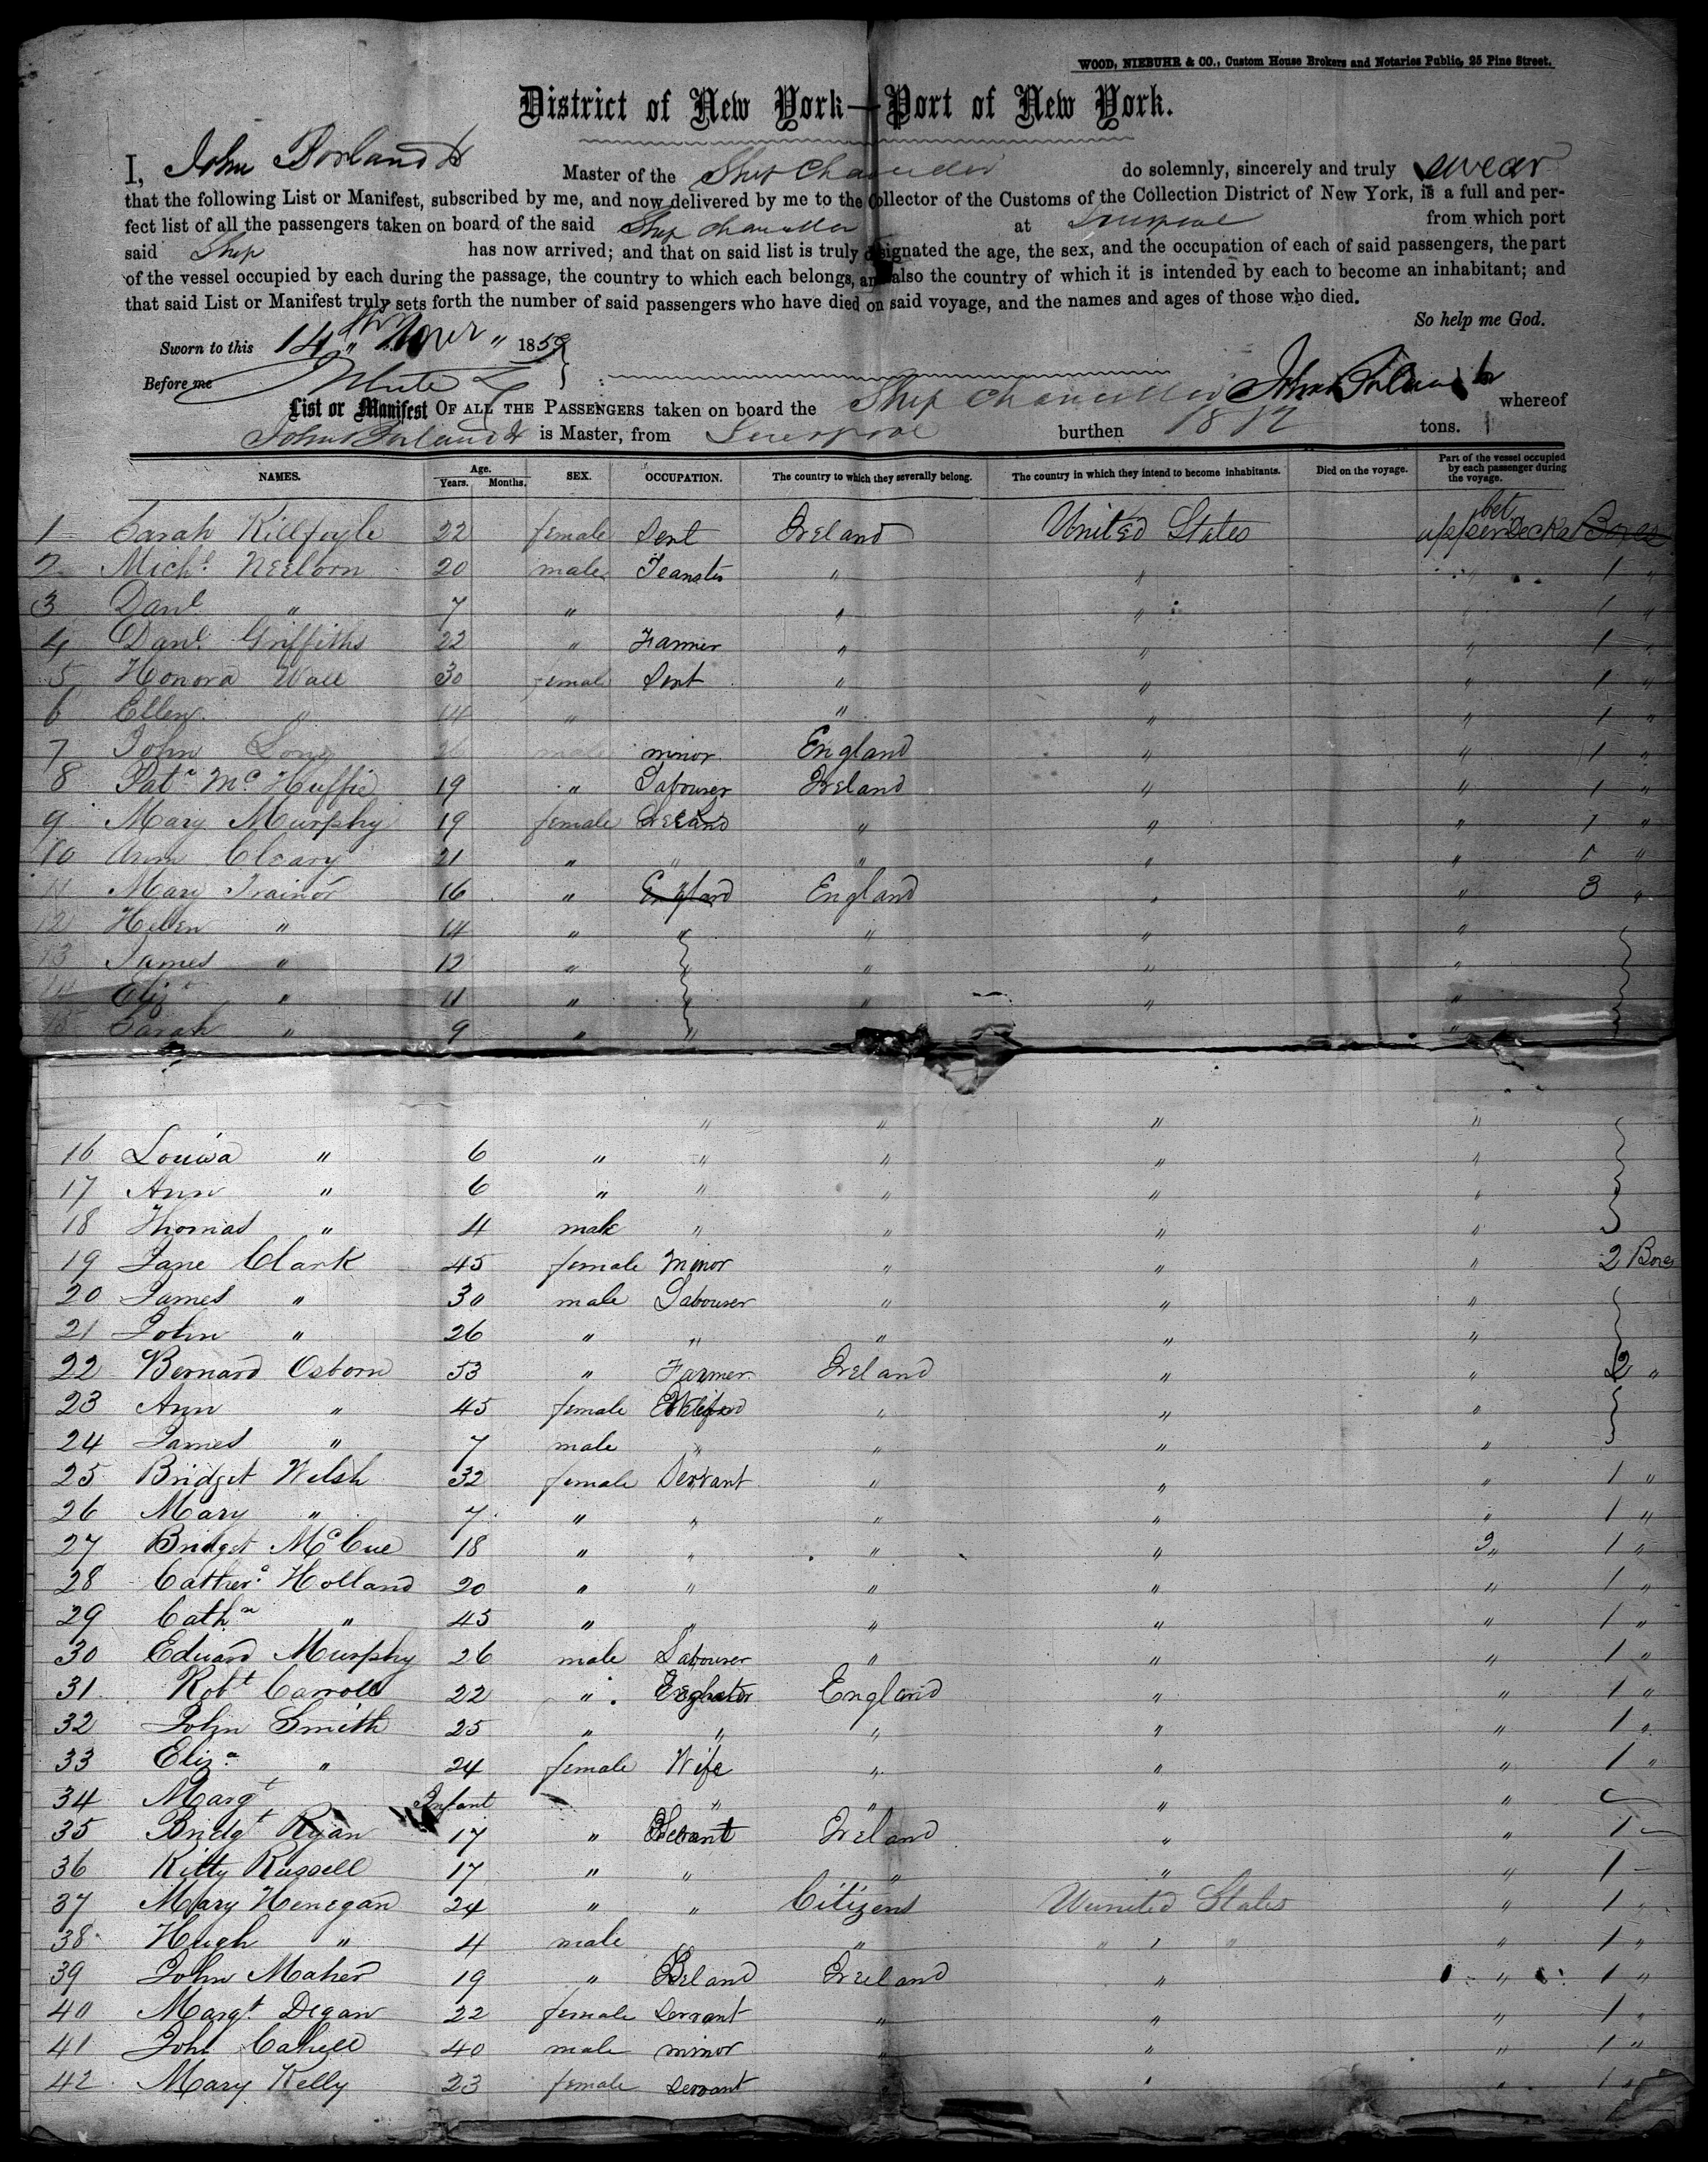 WOOD, NIEBUHR & CO., Custom House Brokers and Notaries Public, 25 Pine Street.
District of New York—Port of New York.
I, John Borland Master of the Ship Chancellor do solemnly, sincerely and truly swear
that the following List or Manifest, subscribed by me, and now delivered by me to the Collector of the Customs of the Collection District of New York, is a full and per-
fect list of all the passengers taken on board of the said Ship Chancellor at Liverpool from which port
said Ship has now arrived; and that on said list is truly designated the age, the sex, and the occupation of each of said passengers, the part
of the vessel occupied by each during the passage, the country to which each belongs, and also the country of which it is intended by each to become an inhabitant; and
that said List or Manifest truly sets forth the number of said passengers who have died on said voyage, and the names and ages of those who died.
So help me God.
Sworn to this 14th Novr 1859
Before me White
List or Manifest OF ALL THE PASSENGERS taken on board the Ship Chancellor John Borland whereof
John Borland is Master, from Liverpool burthen tons.
NAMES. Age. Years. Months. SEX. OCCUPATION. The country to which they severally belong. The country in which they intend to become inhabitants. Died on the voyage. Part of the vessel occupied by each passenger during the voyage.
1 Sarah Killfoyle 22 female Sert Ireland United States bet upper Decks Boxes
2 Michl 20 male Teamster " " " 1 "
3 Danl " 7 " " " " 1 "
4 Danl Griffiths 22 " Farmer " " " 1 "
5 Honora Wall 30 female Sert " " " 1 "
6 Ellen " 14 " " " " 1 "
7 John Long 26 male minor England " " 1 "
8 Pat. Mc Huffie 19 " Labourer Ireland " " 1 "
9 Mary Murphy 19 female Ireland " " " 1 "
10 Ann Cleary 21 " " " " " 1 "
11 Mary Trainor 16 " England England " " 3 "
12 Helen " 14 " " " " "
13 James " 12 " " " " "
14 Eliz " 11 " " " " "
15 Sarah " 9 " " "
" " " "
16 Louisa " 6 " " " " "
17 Ann " 6 " " " " "
18 Thomas " 4 male " " " "
19 Jane Clark 45 female Minor " " " 2 Boxes
20 James " 30 male Labourer " " "
21 John " 26 " " " " "
22 Bernard Osborn 53 " Farmer Ireland " " 2 "
23 Ann " 45 female Wife " " "
24 James " 7 male " " " "
25 Bridget Welsh 32 female Servant " " " 1 "
26 Mary " 7 " " " " " 1 "
27 Bridget McCue 18 " " " " " 1 "
28 Cather.e Holland 20 " " " " " 1 "
29 Cathn " 45 " " " " " 1 "
30 Edward Murphy 26 male Labourer " " " 1 "
31 Robt Carroll 22 " England " " 1 "
32 John Smith 25 " " " " " 1 "
33 Eliza " 24 female Wife " " " 1 "
34 Margt Infant " " " "
35 Bridgt Ryan 17 " Servant Ireland " " 1
36 Kitty Russell 17 " " " " " 1
37 Mary Henegan 24 " " Citizens Wunited States " 1 "
38 Hugh " 4 male " " " " 1 "
39 John Maher 19 " Ireland " " 1 "
40 Margt Degan 22 female Servant " " " 1 "
41 John Cahill 40 male minor " " " 1 "
42 Mary Kelly 23 female servant " " " 1 "